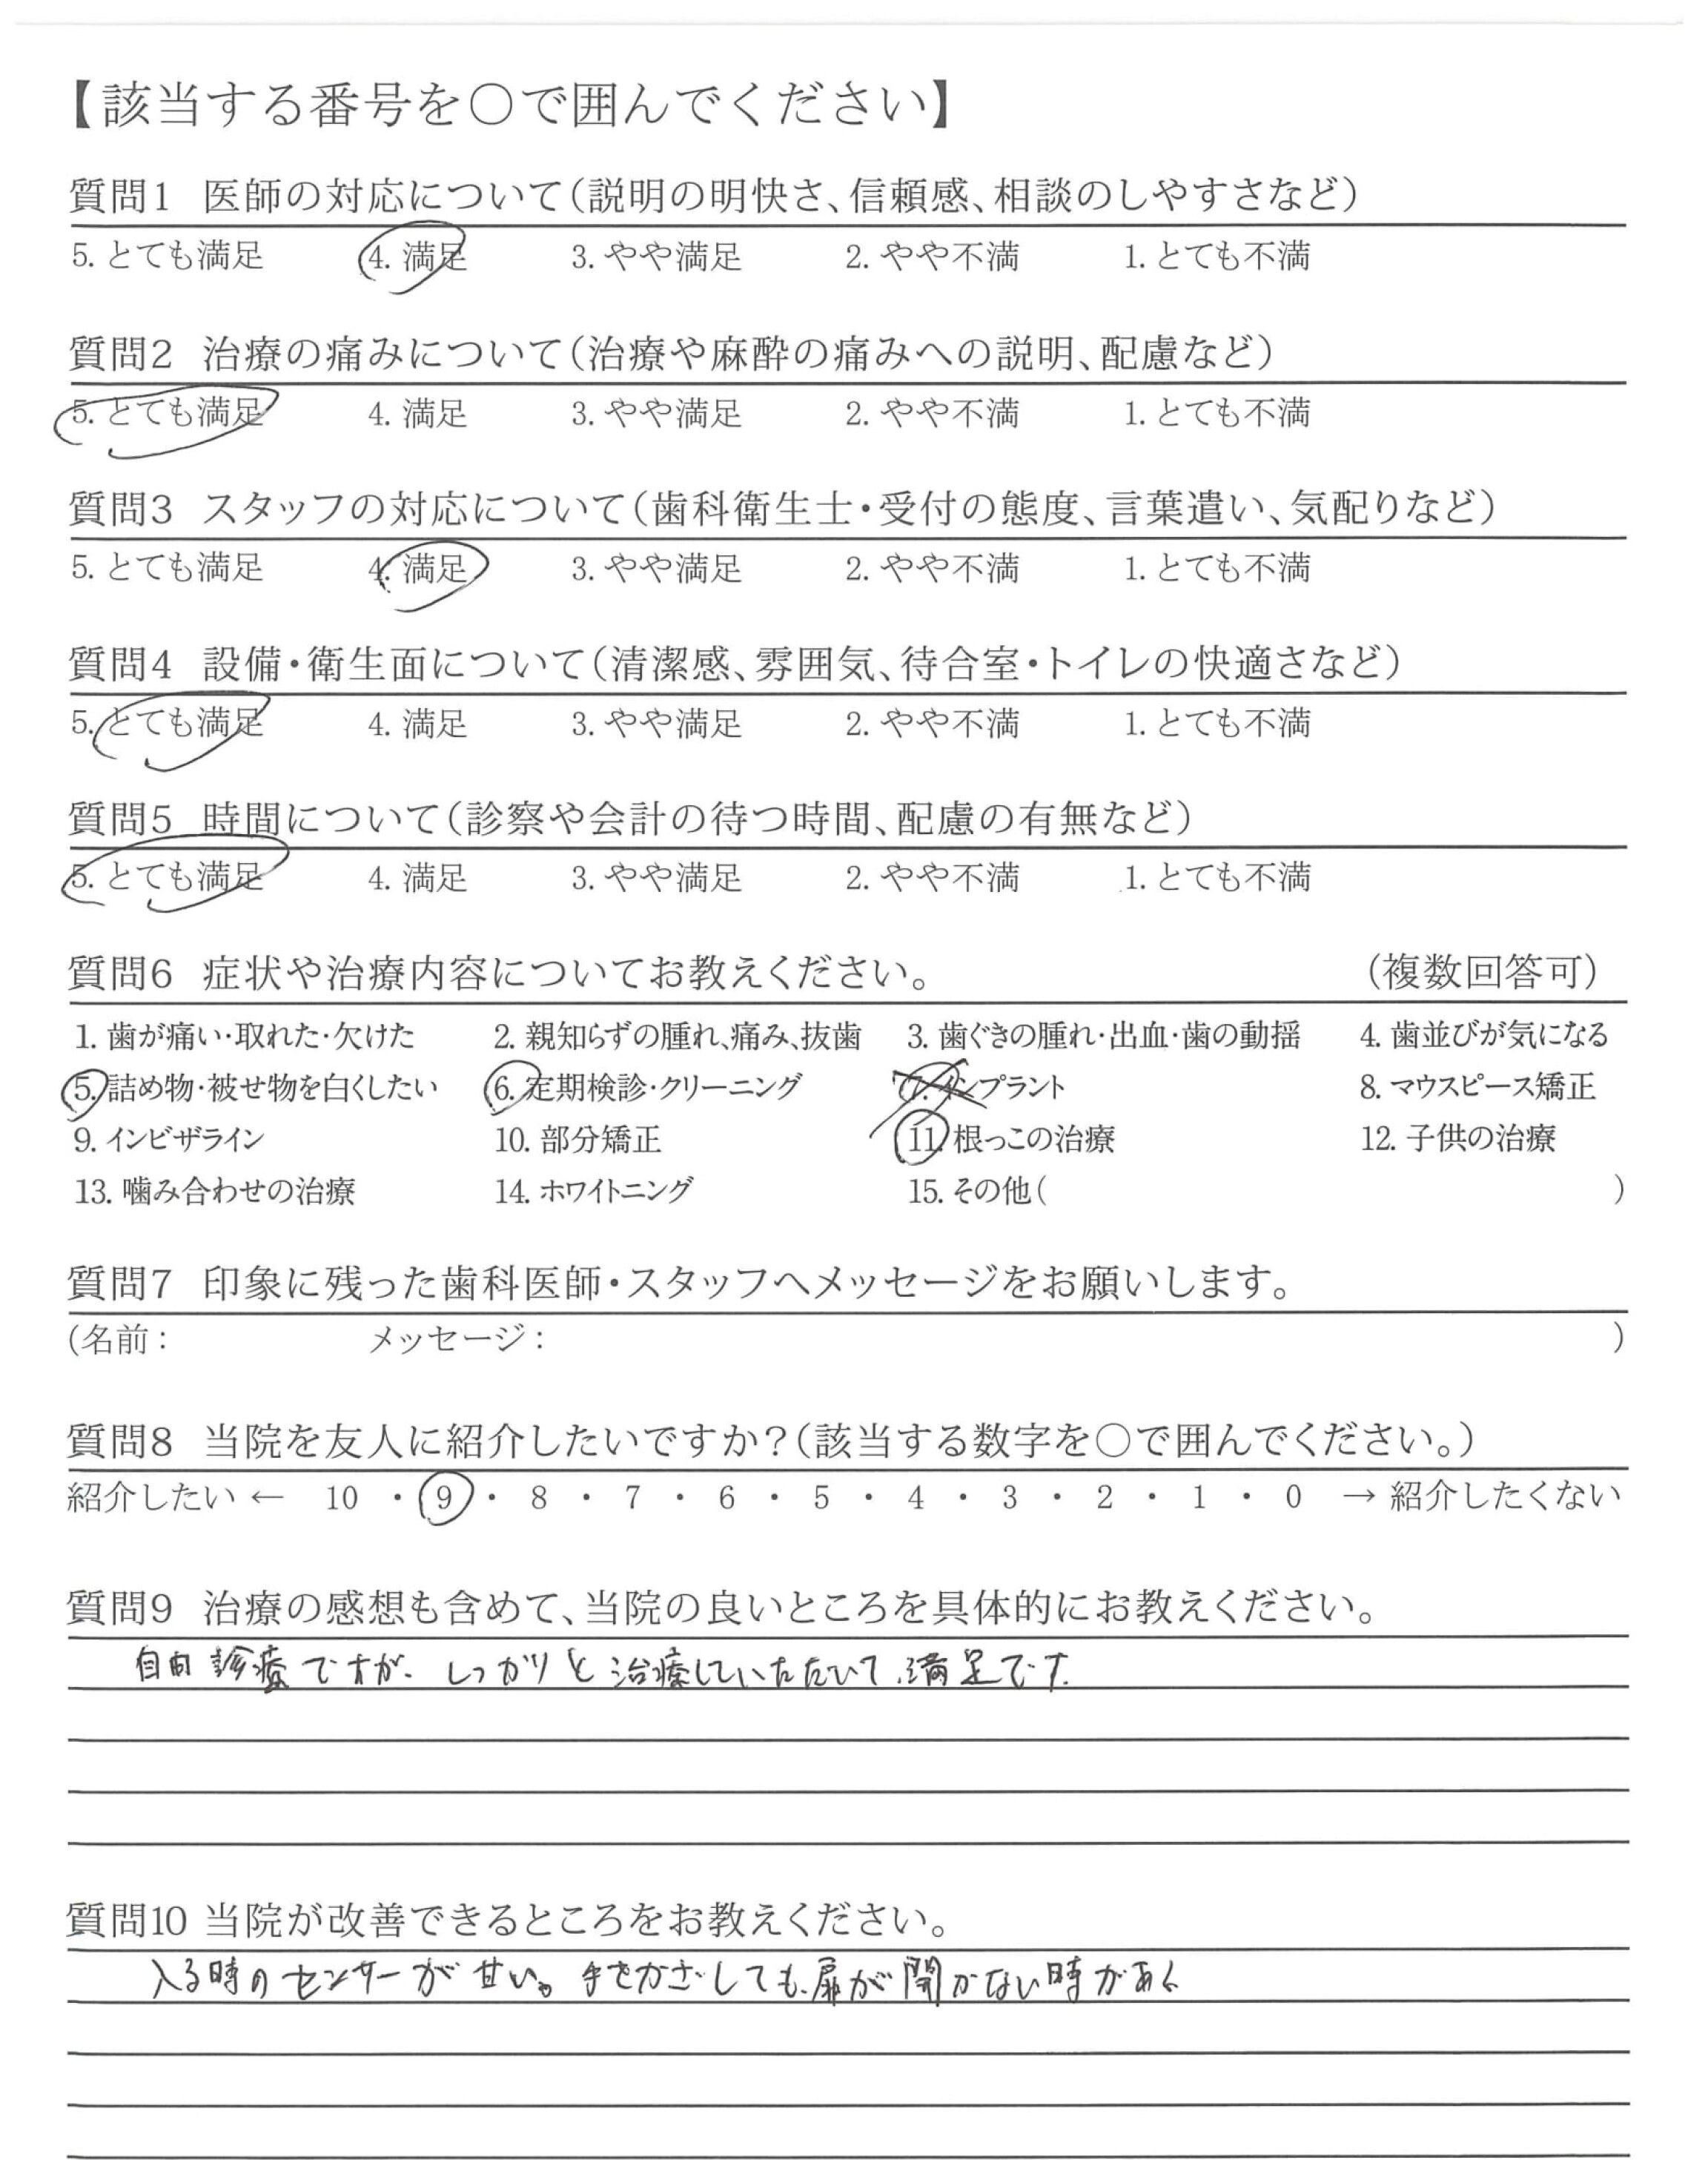 【該当する番号を○で囲んでください】
質問1 医師の対応について(説明の明快さ、信頼感、相談のしやすさなど)
5. とても満足 4. 満足 3. やや満足 2. やや不満 1. とても不満
質問2 治療の痛みについて(治療や麻酔の痛みへの説明、配慮など)
5. とても満足 4. 満足 3. やや満足 2. やや不満 1. とても不満
質問3 スタッフの対応について(歯科衛生士・受付の態度、言葉遣い、気配りなど)
5. とても満足 4. 満足 3. やや満足 2. やや不満 1. とても不満
質問4 設備・衛生面について(清潔感、雰囲気、待合室・トイレの快適さなど)
5. とても満足 4. 満足 3. やや満足 2. やや不満 1. とても不満
質問5 時間について(診察や会計の待つ時間、配慮の有無など)
5. とても満足 4. 満足 3. やや満足 2. やや不満 1. とても不満
質問6 症状や治療内容についてお教えください。 (複数回答可)
1. 歯が痛い・取れた・欠けた 2. 親知らずの腫れ、痛み、抜歯 3. 歯ぐきの腫れ・出血・歯の動揺 4. 歯並びが気になる
5. 詰め物・被せ物を白くしたい 6. 定期検診・クリーニング 7. インプラント 8. マウスピース矯正
9. インビザライン 10. 部分矯正 11. 根っこの治療 12. 子供の治療
13. 噛み合わせの治療 14. ホワイトニング 15. その他( )
質問7 印象に残った歯科医師・スタッフへメッセージをお願いします。
(名前: メッセージ: )
質問8 当院を友人に紹介したいですか?(該当する数字を○で囲んでください。)
紹介したい ← 10 ・ 9 ・ 8 ・ 7 ・ 6 ・ 5 ・ 4 ・ 3 ・ 2 ・ 1 ・ 0 → 紹介したくない
質問9 治療の感想も含めて、当院の良いところを具体的にお教えください。
自由診療ですが、しっかりと治療していただいて、満足です。
質問10 当院が改善できるところをお教えください。
入る時のセンサーが甘い。手をかざしても、扉が開かない時がある